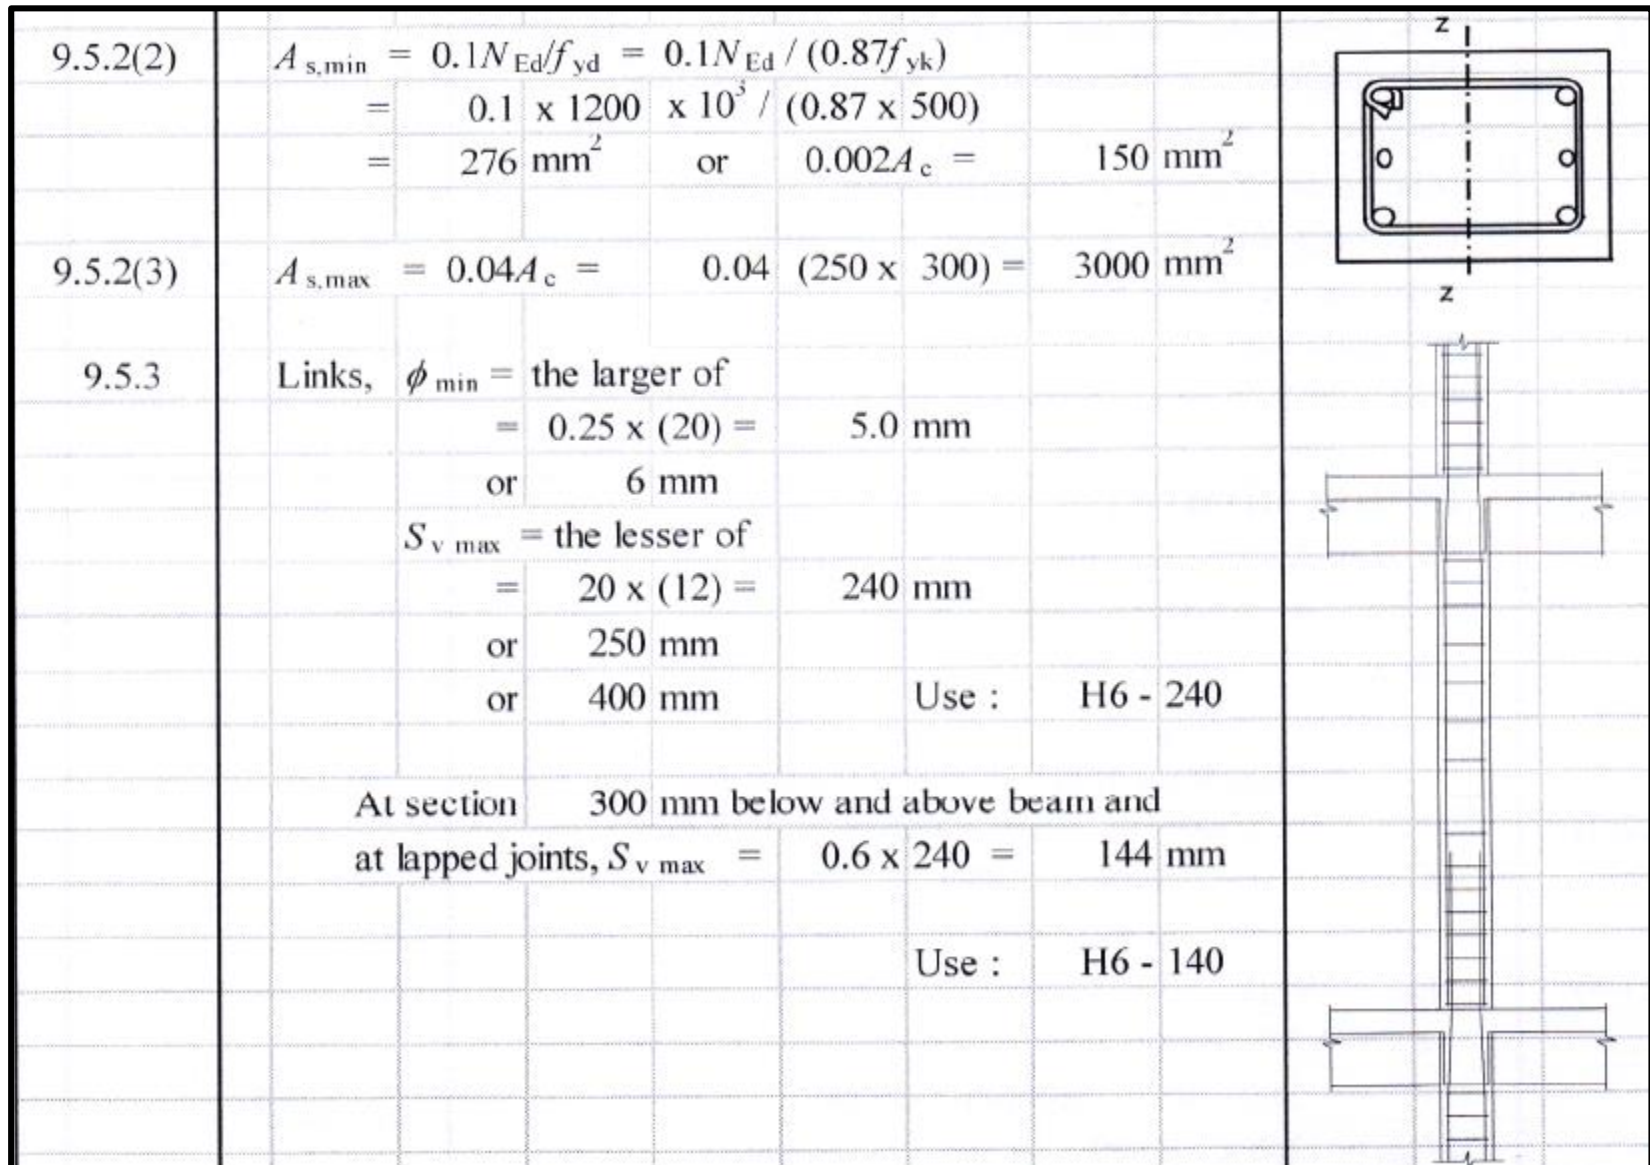 z
9.5.2(2) A s,min = 0.1N Ed/f yd = 0.1N Ed / (0.87f yk)
= 0.1 x 1200 x 10³ / (0.87 x 500)
= 276 mm² or 0.002A c = 150 mm²
9.5.2(3) A s,max = 0.04A c = 0.04 (250 x 300) = 3000 mm²
z
9.5.3 Links, ϕ min = the larger of
= 0.25 x (20) = 5.0 mm
or 6 mm
S v max = the lesser of
= 20 x (12) = 240 mm
or 250 mm
or 400 mm Use : H6 - 240
At section 300 mm below and above beam and
at lapped joints, S v max = 0.6 x 240 = 144 mm
Use : H6 - 140